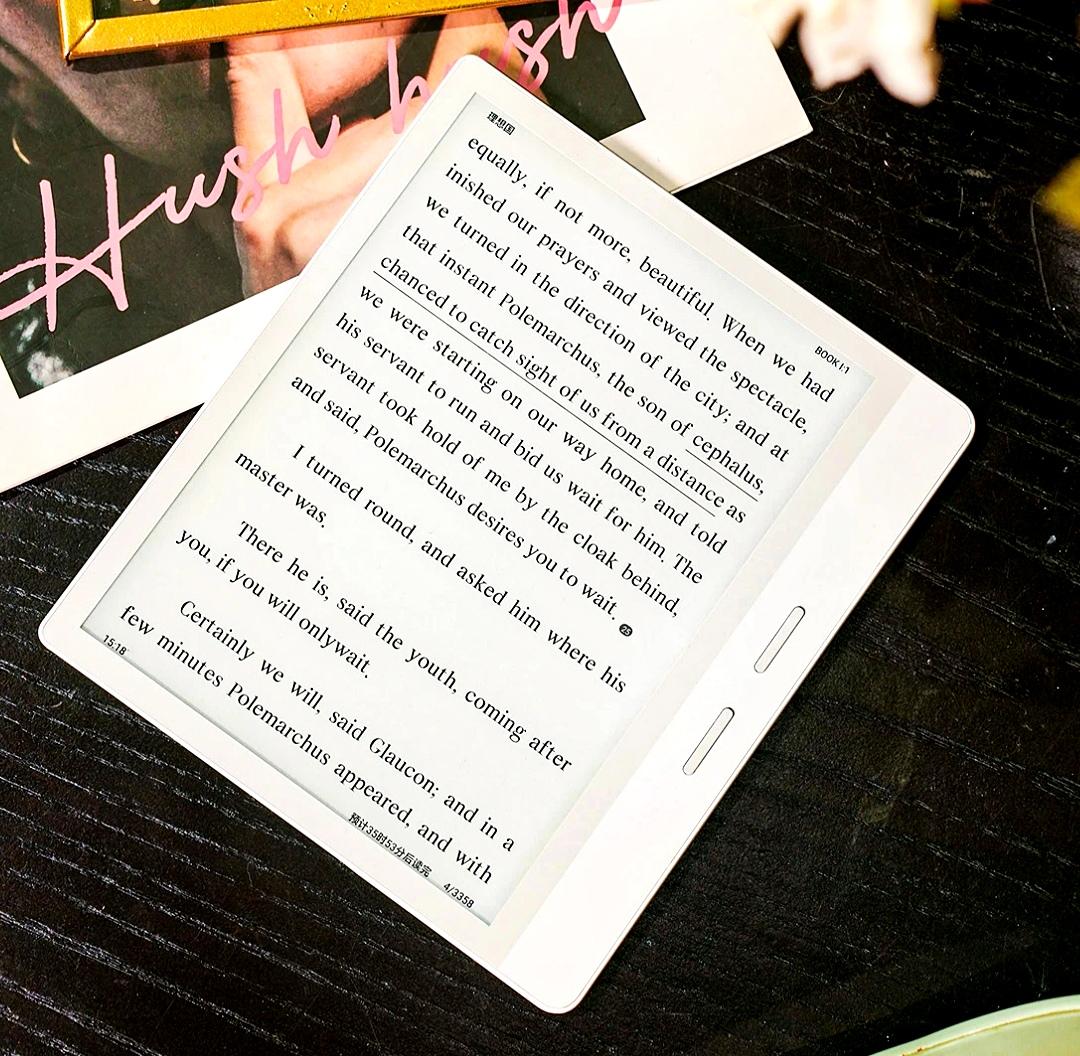 Hush hush
理想国
BOOK I:1
equally, if not more, beautiful. When we had
inished our prayers and viewed the spectacle,
we turned in the direction of the city; and at
that instant Polemarchus, the son of cephalus,
chanced to catch sight of us from a distance as
we were starting on our way home, and told
his servant to run and bid us wait for him. The
servant took hold of me by the cloak behind,
and said, Polemarchus desires you to wait.
I turned round, and asked him where his
master was.
There he is, said the youth, coming after
you, if you will onlywait.
Certainly we will, said Glaucon; and in a
few minutes Polemarchus appeared, and with
15:18
预计35时53分后读完
4/3358